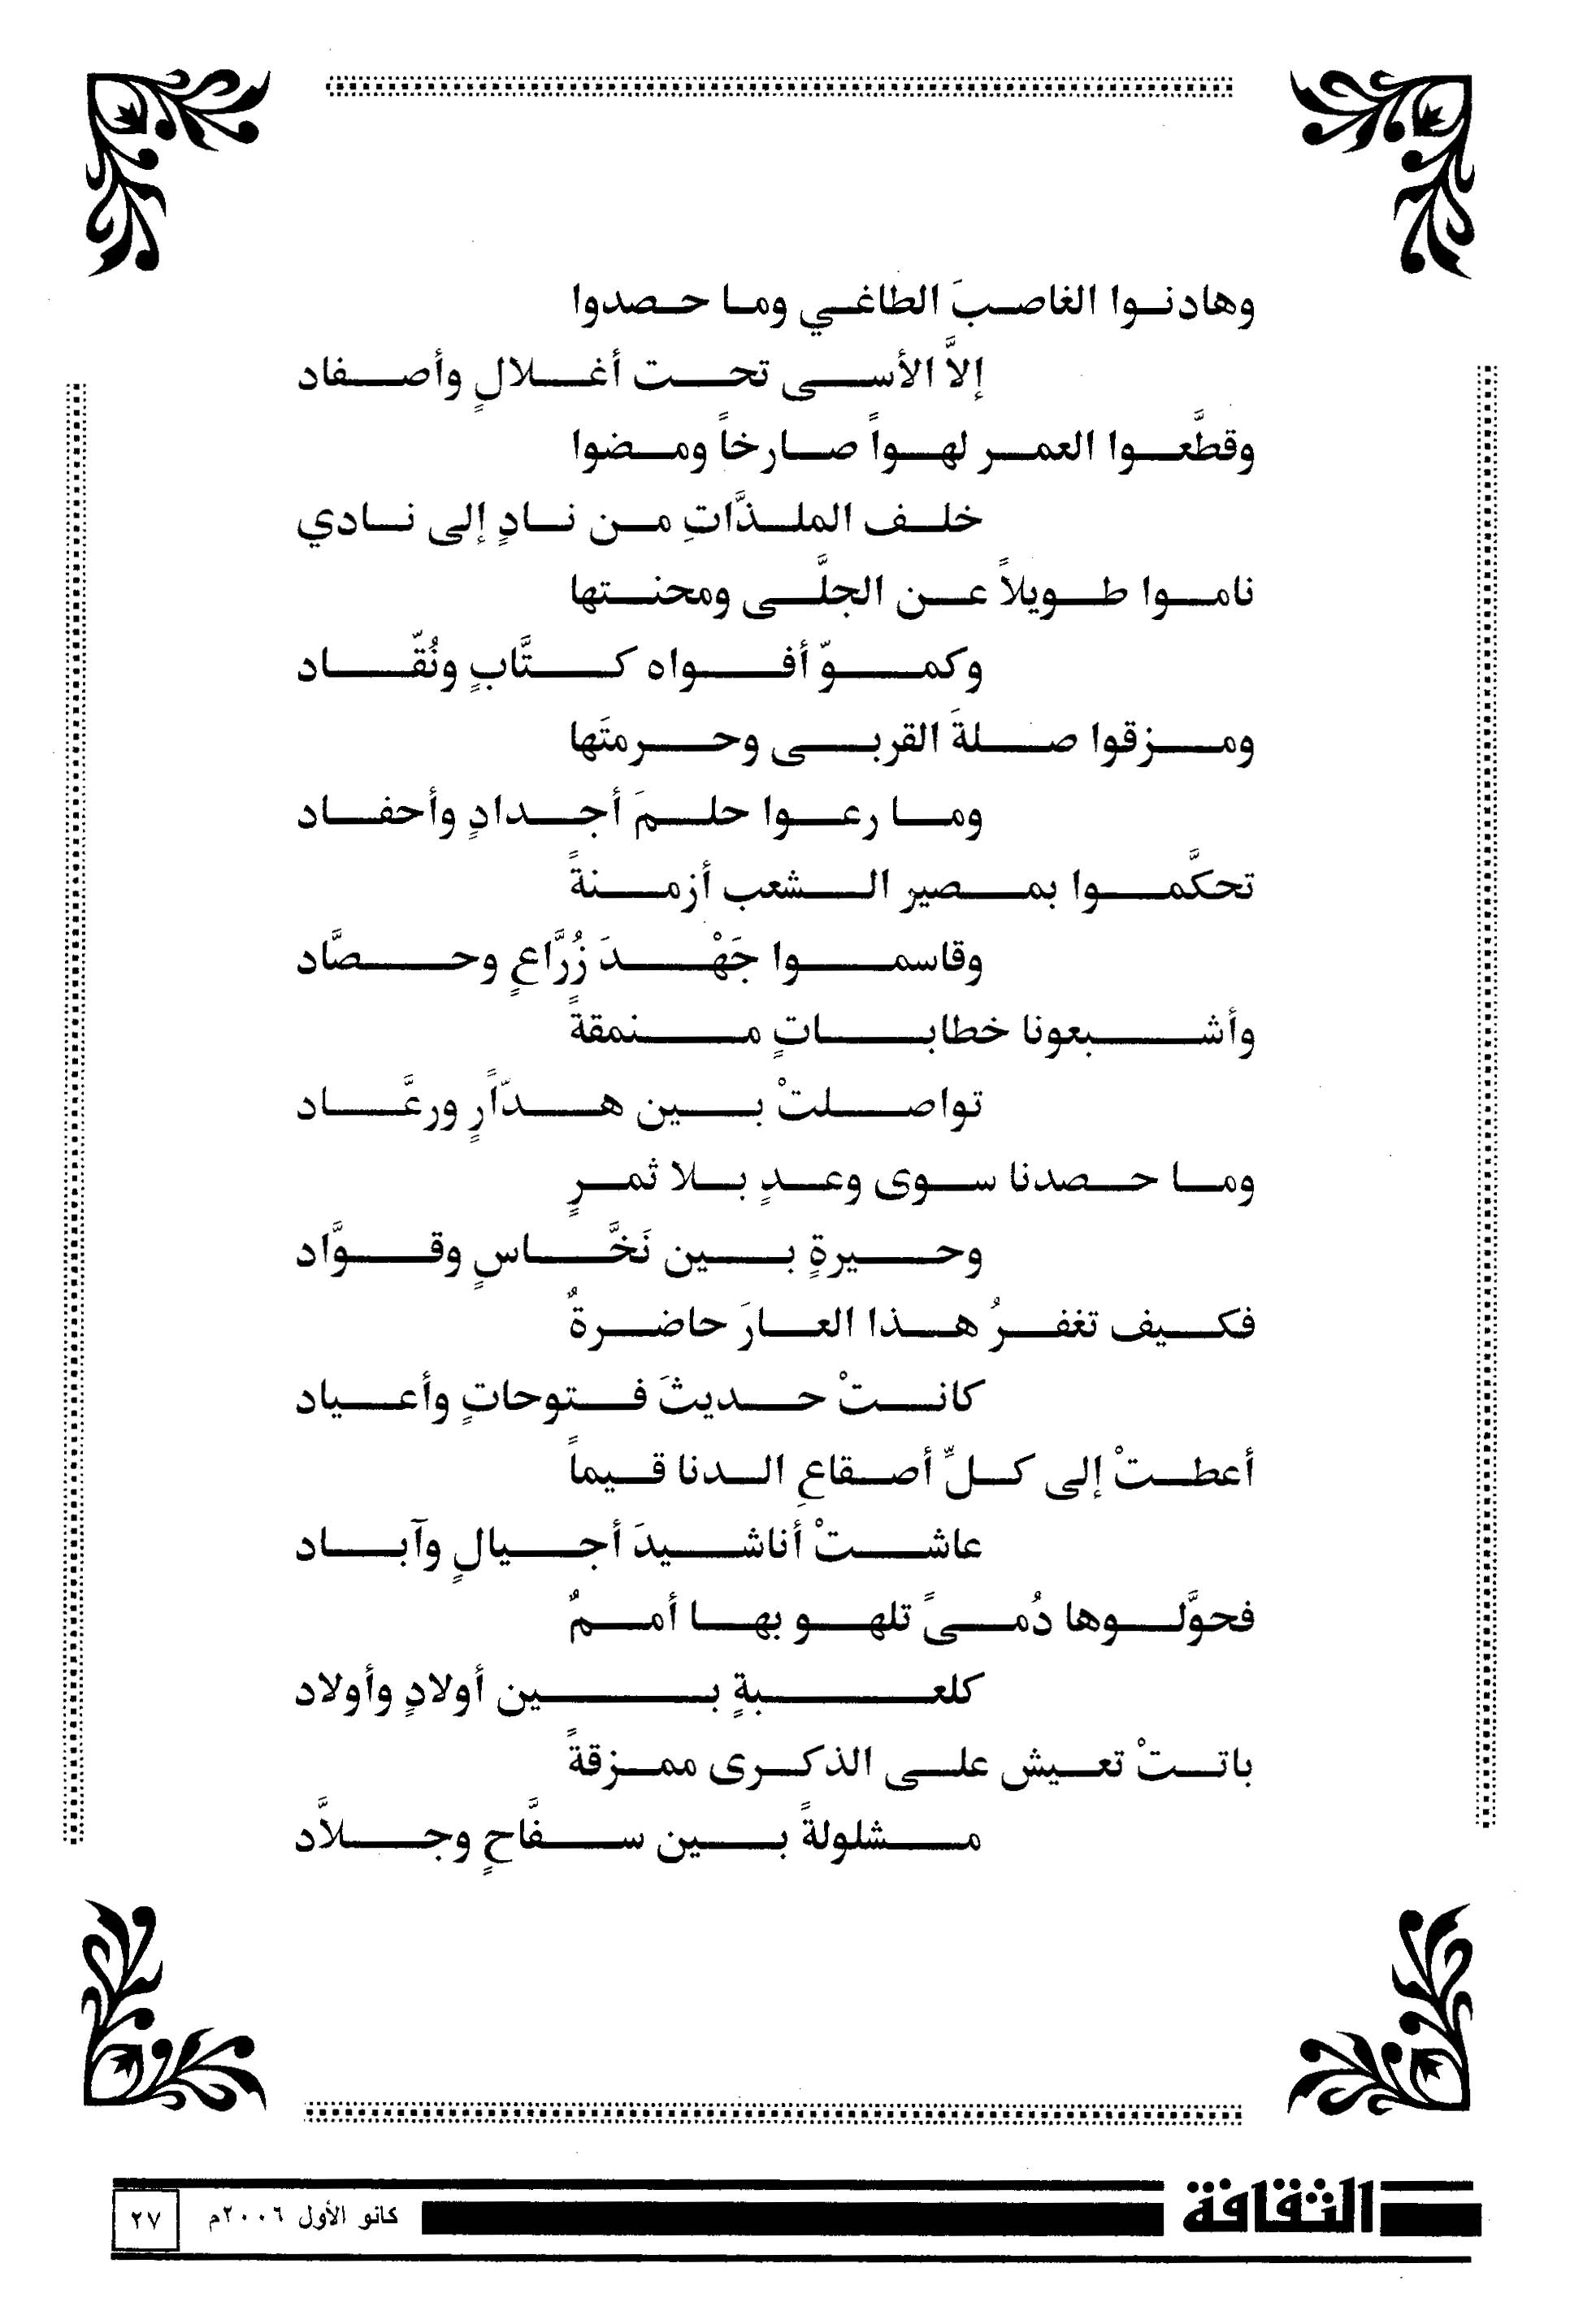 وهادنوا الغاصبَ الطاغي وما حصدوا
إلاَّ الأسى تحت أغلالٍ وأصفاد
وقطَّعوا العمر لهواً صارخاً ومضوا
خلف الملذَّاتِ من نادٍ إلى نادي
ناموا طويلاً عن الجلَّى ومحنتها
وكموّ أفواه كتَّابٍ ونُقّاد
ومزقوا صلةَ القربى وحرمتَها
وما رعوا حلمَ أجدادٍ وأحفاد
تحكَّموا بمصير الشعب أزمنةً
وقاسموا جَهْدَ زُرَّاعٍ وحصَّاد
وأشبعونا خطاباتٍ منمقةً
تواصلتْ بين هدّاًرٍ ورعَّاد
وما حصدنا سوى وعدٍ بلا ثمرٍ
وحيرةٍ بين نَخَّاسٍ وقوَّاد
فكيف تغفرُ هذا العارَ حاضرةٌ
كانتْ حديثَ فتوحاتٍ وأعياد
أعطتْ إلى كلِّ أصقاعِ الدنا قيماً
عاشتْ أناشيدَ أجيالٍ وآباد
فحوَّلوها دُمىً تلهو بها أممٌ
كلعبةٍ بين أولادٍ وأولاد
باتتْ تعيش على الذكرى ممزقةً
مشلولةً بين سفَّاحٍ وجلاَّد
الثقافة
كانو الأول ٢٠٠٦م
٢٧